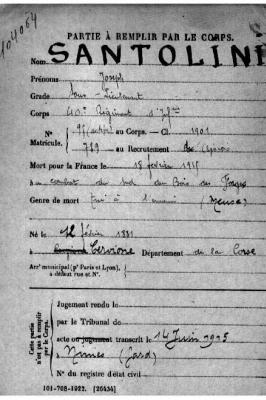 104064
PARTIE À REMPLIR PAR LE CORPS.
Nom SANTOLINI
Prénoms Joseph
Grade Sous-Lieutenant
Corps 40e Régiment d'Infie
N° Matricule. au Corps. — Cl. 1901
789 au Recrutement
Mort pour la France le 18 février 1915
au combat du sud du Bois des Forges
Genre de mort tué à l'ennemi (Meuse)
Né le 12 février 1881
à Cervione Département de la Corse
Arrt municipal (pr Paris et Lyon), à défaut rue et N°.
Cette partie n'est pas à remplir par le Corps.
Jugement rendu le
par le Tribunal de
acte ou jugement transcrit le 14 Juin 1915
à Nîmes (Gard)
N° du registre d'état civil
101-708-1922. [26434]